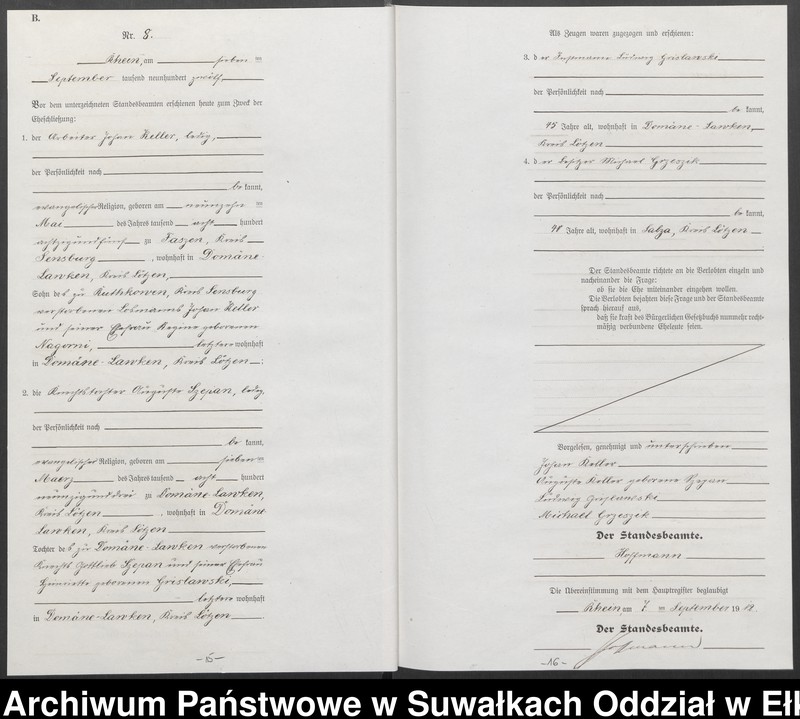 B.
Nr. 8.
Rhein, am sieben ten
September tausend neunhundert zwölf
Vor dem unterzeichneten Standesbeamten erschienen heute zum Zweck der
Eheschließung:
1. der Arbeiter Johan Keller, ledig,
der Persönlichkeit nach
be kannt,
evangelischer Religion, geboren am neunzehn ten
Mai des Jahres tausend acht hundert
achtzigundfünf zu Faszen, Kreis
Sensburg, wohnhaft in Domäne-
Lawken, Kreis Lötzen,
Sohn des zu Kuthkowen, Kreis Sensburg
verstorbenen Losmanns Johan Keller
und seiner Ehefrau Regine geborenen
Nagorni, letztere wohnhaft
in Domäne-Lawken, Kreis Lötzen:
2. die Knechtstochter Auguste Szepan, ledig,
der Persönlichkeit nach
be kannt,
evangelischer Religion, geboren am sieben ten
Maerz des Jahres tausend acht hundert
neunzigunddrei zu Domäne-Lawken,
Kreis Lötzen, wohnhaft in Domäne
Lawken, Kreis Lötzen
Tochter des zu Domäne-Lawken verstorbenen
Knechts Gottlieb Szepan und seiner Ehefrau
geborenen Grislawski,
letztere wohnhaft
in Domäne-Lawken, Kreis Lötzen.
-15-
Als Zeugen waren zugezogen und erschienen:
3. der Instmann Ludwig Grislawski
der Persönlichkeit nach
be kannt,
45 Jahre alt, wohnhaft in Domäne-Lawken,
Kreis Lötzen
4. der Besitzer Michael Grzeszek
der Persönlichkeit nach
be kannt,
48 Jahre alt, wohnhaft in Salza, Kreis Lötzen
Der Standesbeamte richtete an die Verlobten einzeln und
nacheinander die Frage:
ob sie die Ehe miteinander eingehen wollen.
Die Verlobten bejahten diese Frage und der Standesbeamte
sprach hierauf aus,
daß sie kraft des Bürgerlichen Gesetzbuchs nunmehr recht-
mäßig verbundene Eheleute seien.
Vorgelesen, genehmigt und unterschrieben
Johan Keller
Auguste Keller geborene Szepan
Ludwig Grislawski
Michael Grzeszek
Der Standesbeamte.
Hoffmann
Die Übereinstimmung mit dem Hauptregister beglaubigt
Rhein, am 7. ten September 19 12.
Der Standesbeamte.
Hoffmann
-16-
Archiwum Państwowe w Suwałkach Oddział w Ełk